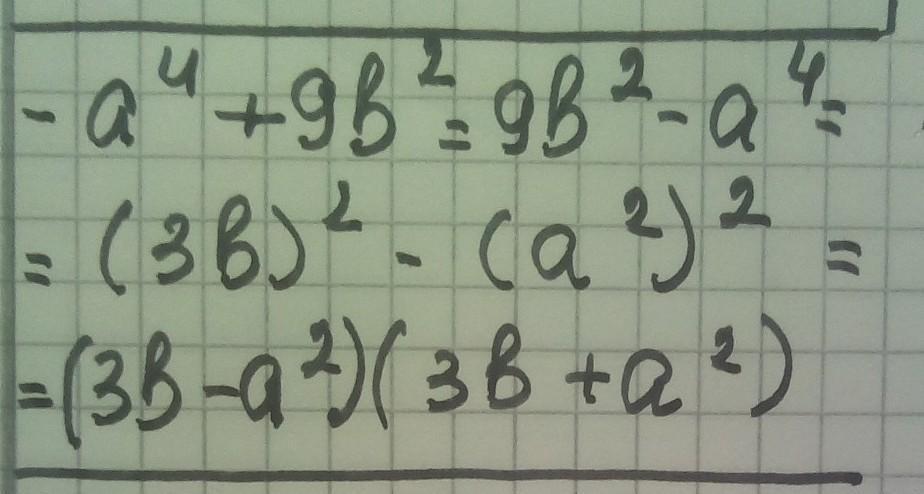 -a⁴+9b²=9b²-a⁴=
=(3b)²-(a²)²=
=(3b-a²)(3b+a²)